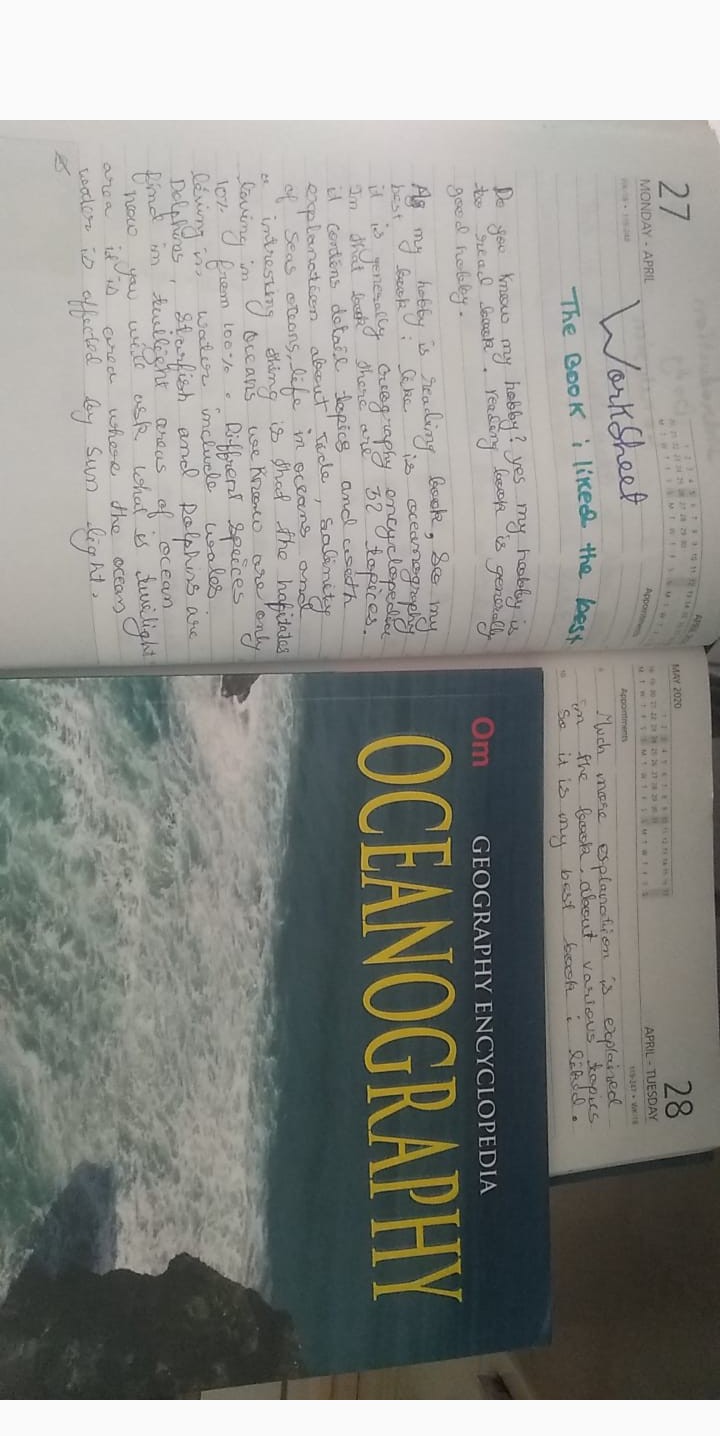 27
MONDAY • APRIL
Appointments
WorkSheet
The Book i liked the best
Do you know my hobby? yes my hobby is
too read book. reading book is generally
good hobby.
As my hobby is reading book, So my
best book i like is oceanography
it is generally Geography encyclopedia
In that book there are 32 topices.
it contens detail topics and with
explanation about Tide, salinity
of seas oceans, life in oceans and
a intresting thing is that the hapitates
living in oceans we know are only
10% from 100%. Diffrent speices
living in water include wales.
Dolphins, starfish and Dolphins are
find in twilight areas of ocean
now you will ask what is twilight
area it is area where the ocean
water is affected by sun light.
MAY 2020
28
APRIL • TUESDAY
Appointments
Much more explanation is explained
in the book, about various topics
so it is my best book i liked.
Om GEOGRAPHY ENCYCLOPEDIA
OCEANOGRAPHY